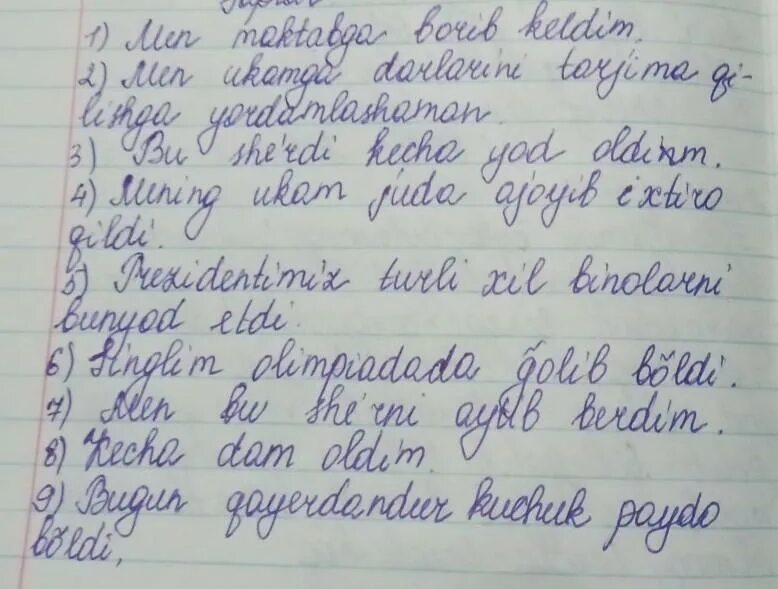 1) Men maktabga borib keldim.
2) Men ukamga darlarini tarjima qi-
lishga yordamlashaman.
3) Bu she'rdi kecha yod oldim.
4) Mening ukam juda ajoyib ixtiro
qildi.
5) Prezidentimiz turli xil binolarni
bunyod etdi.
6) Singlim olimpiadada g̃olib bõldi.
7) Men bu she'rni aytib berdim.
8) Kecha dam oldim.
9) Bugun qayerdandur kuchuk paydo
bõldi,